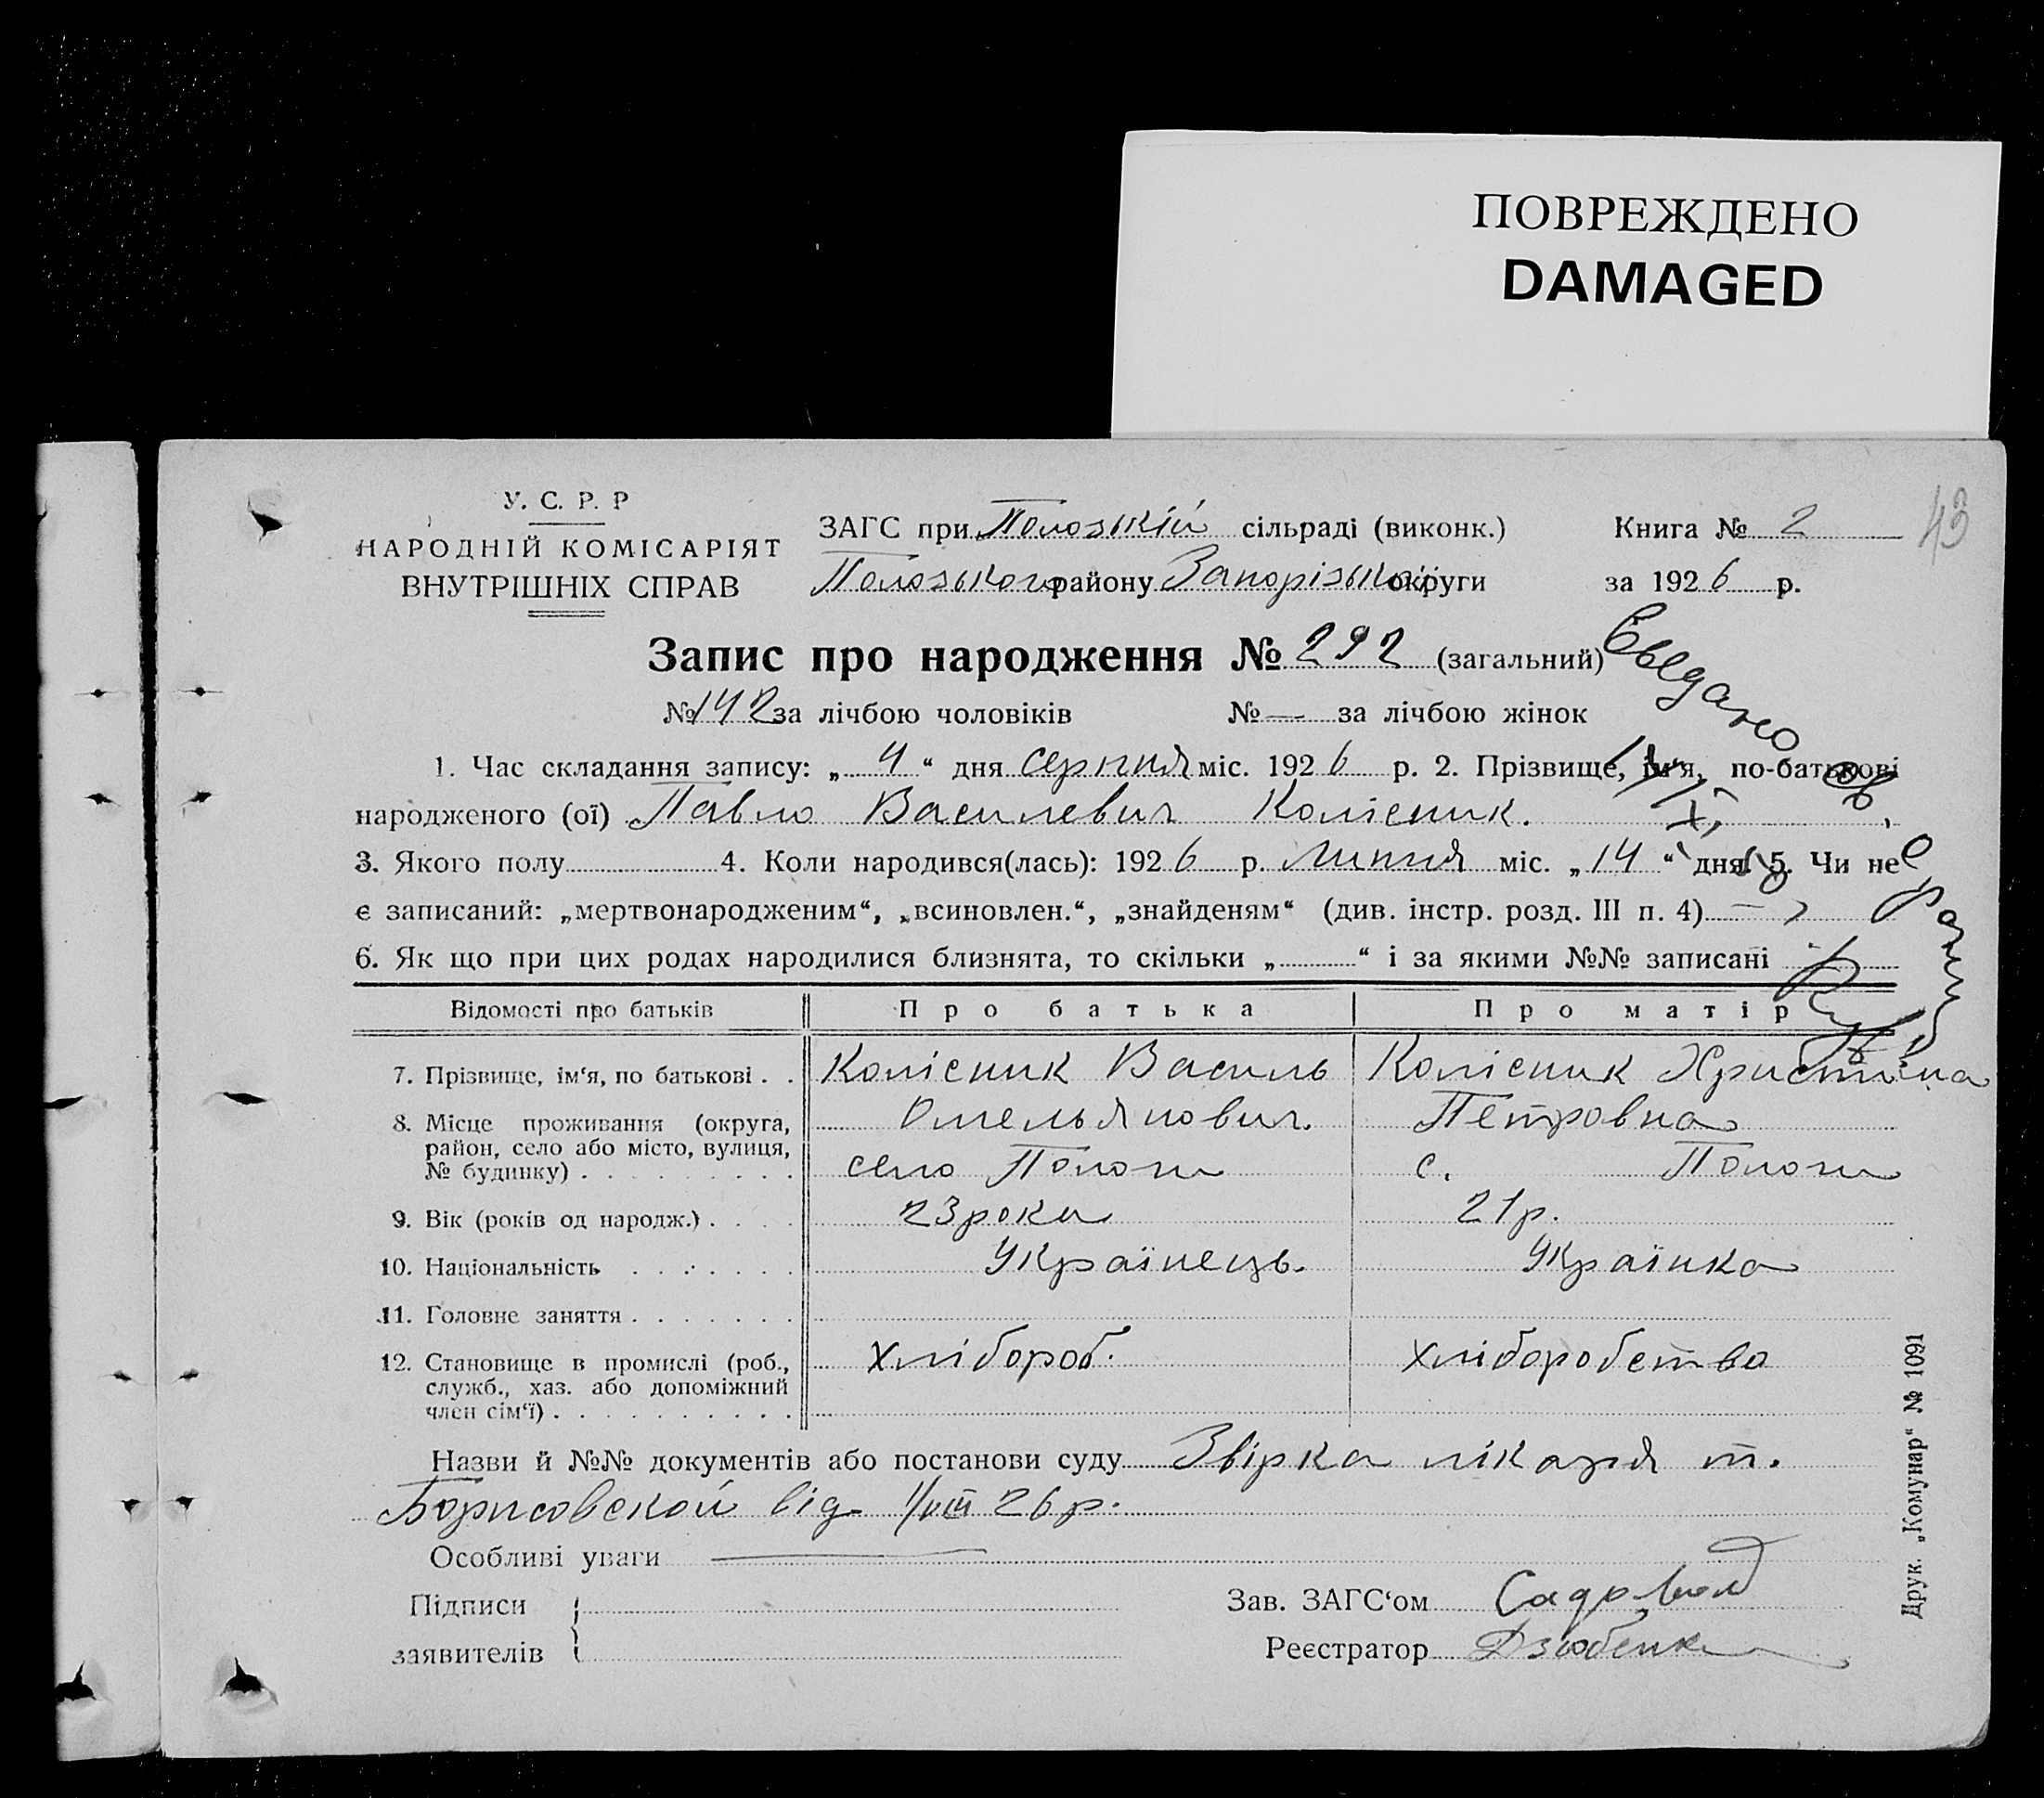 ПОВРЕЖДЕНО
DAMAGED
43
У. С. Р. Р
НАРОДНІЙ КОМІСАРІЯТ
ВНУТРІШНІХ СПРАВ
ЗАГС при Пологській сільраді (виконк.)
Книга № 2
Пологського району Запорізької округи
за 1926 р.
Запис про народження № 292 (загальний)
№ 142 за лічбою чоловіків № — за лічбою жінок
1. Час складання запису: „ 4 “ дня серпня міс. 1926 р. 2. Прізвище, ім'я, по-батькові
народженого (ої) Павло Василевич Колісник.
3. Якого полу 4. Коли народився(лась): 1926 р. Липня міс. „ 14 “ дня. 5. Чи не
є записаний: „мертвонародженим“, „всиновлен.“, „знайденям“ (див. інстр. розд. III п. 4) —
6. Як що при цих родах народилися близнята, то скільки „ “ і за якими №№ записані
Відомості про батьків
Про батька
Про матір
7. Прізвище, ім'я, по батькові . . Колісник Василь Колісник Христина
Омельянович. Петровна
8. Місце проживання (округа,
район, село або місто, вулиця,
№ будинку) . село Пологи с. Пологи
9. Вік (років од народж.) . 23 роки 21 р.
10. Національність . Українець. Українка
11. Головне заняття .
12. Становище в промислі (роб.,
служб., хаз. або допоміжний
член сім'ї) . хлібороб. хліборобство
Назви й №№ документів або постанови суду Звірка лікаря т.
Борисовской від 1/VIII 26 р.
Особливі уваги —
Підписи
заявителів
Зав. ЗАГС'ом
Реєстратор Дзюбенко
Друк. „Комунар“ № 1091